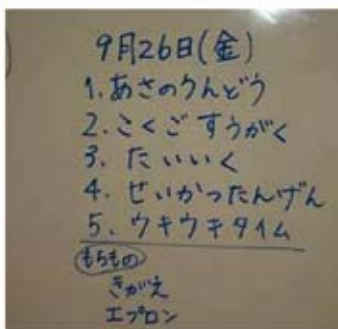 9月26日(金)
1.あさのうんどう
2.こくご すうがく
3.たいいく
4.せいかつたんげん
5.ウキウキタイム
もちもの
きがえ
エプロン